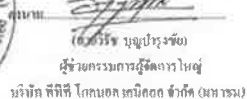 ลงนาม
บุญบำรุงชัย)
ผู้ช่วยกรรมการผู้จัดการใหญ่
บริษัท พีทีที โกลบอล เคมิคอล จำกัด (มหาชน)